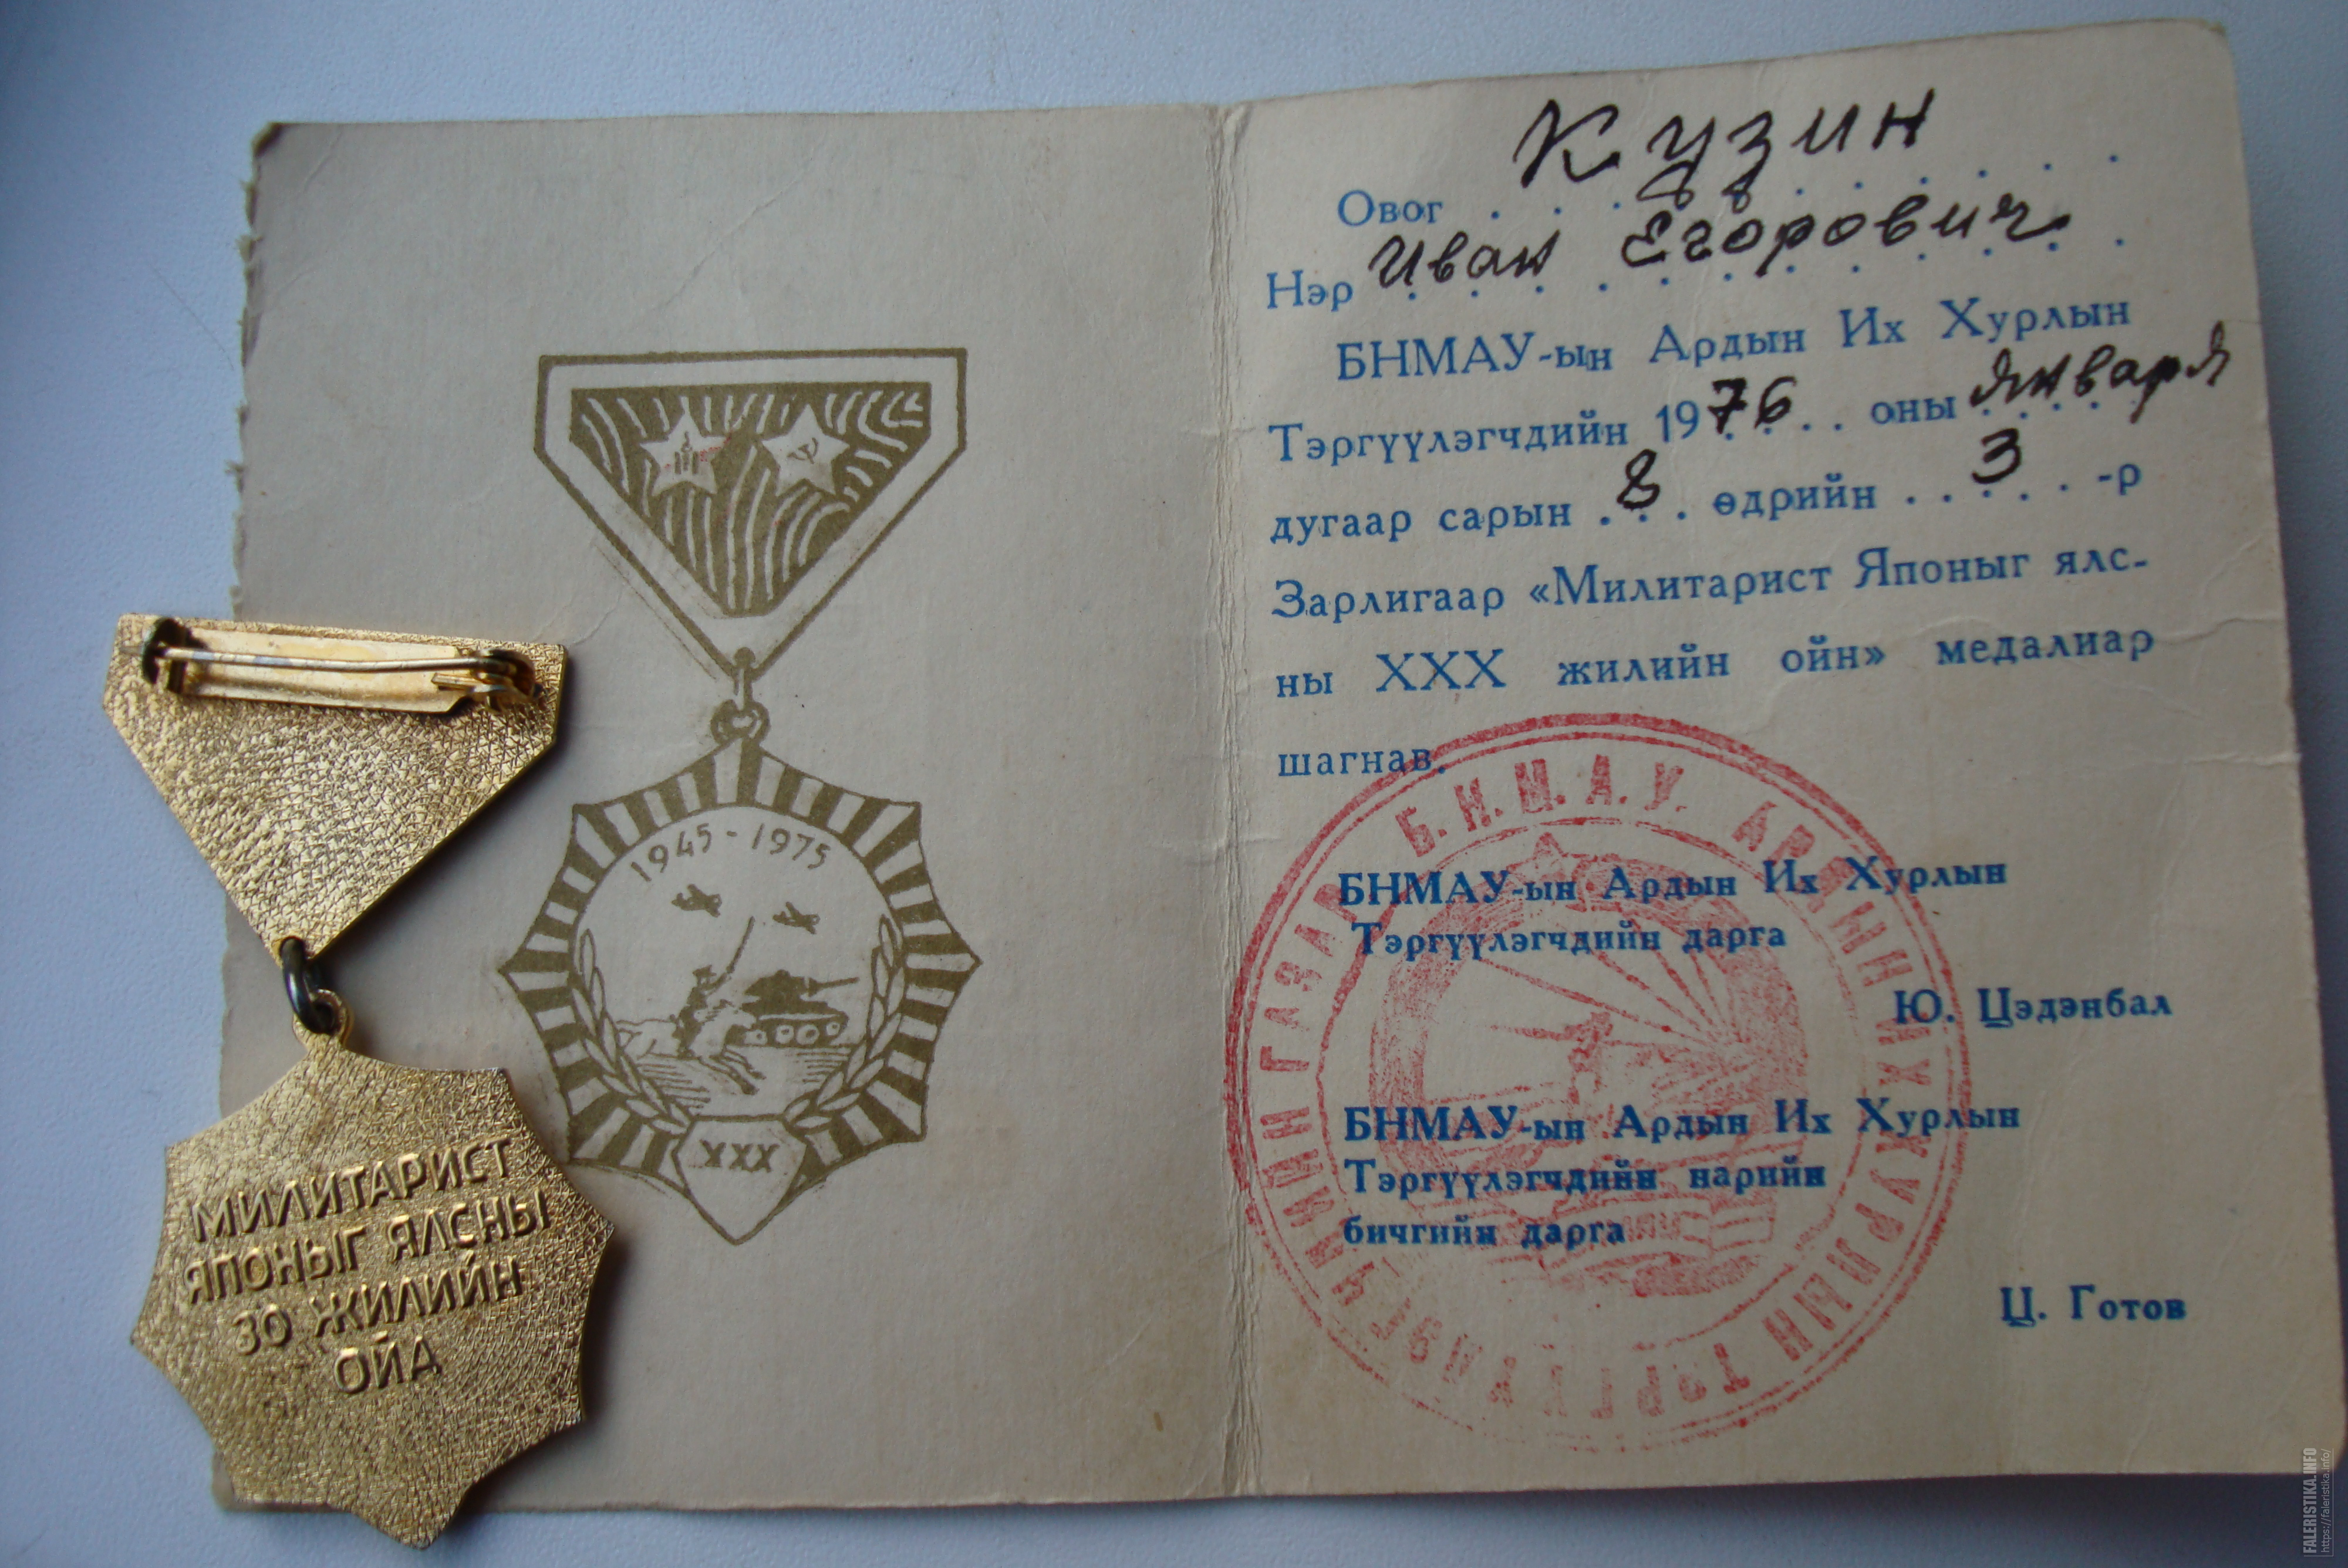 1945 - 1975
XXX
МИЛИТАРИСТ
ЯПОНЫГ ЯЛСНЫ
30 ЖИЛИЙН
ОЙД
Овог Кузин
Нэр Иван Егорович
БНМАУ-ын Ардын Их Хурлын
Тэргүүлэгчдийн 1976 . . оны января
дугаар сарын . 8 . өдрийн . . 3 . . -р
Зарлигаар «Милитарист Японыг ялс-
ны XXX жилийн ойн» медалиар
шагнав.
БНМАУ-ын Ардын Их Хурлын
Тэргүүлэгчдийн дарга
Ю. Цэдэнбал
БНМАУ-ын Ардын Их Хурлын
Тэргүүлэгчдийн нарийн
бичгийн дарга
Ц. Готов
Б.Н.М.А.У. АРДЫН ИХ ХУРЛЫН ТЭРГҮҮЛЭГЧДИЙН ГАЗАР
FALERISTIKA.INFO
https://faleristika.info/